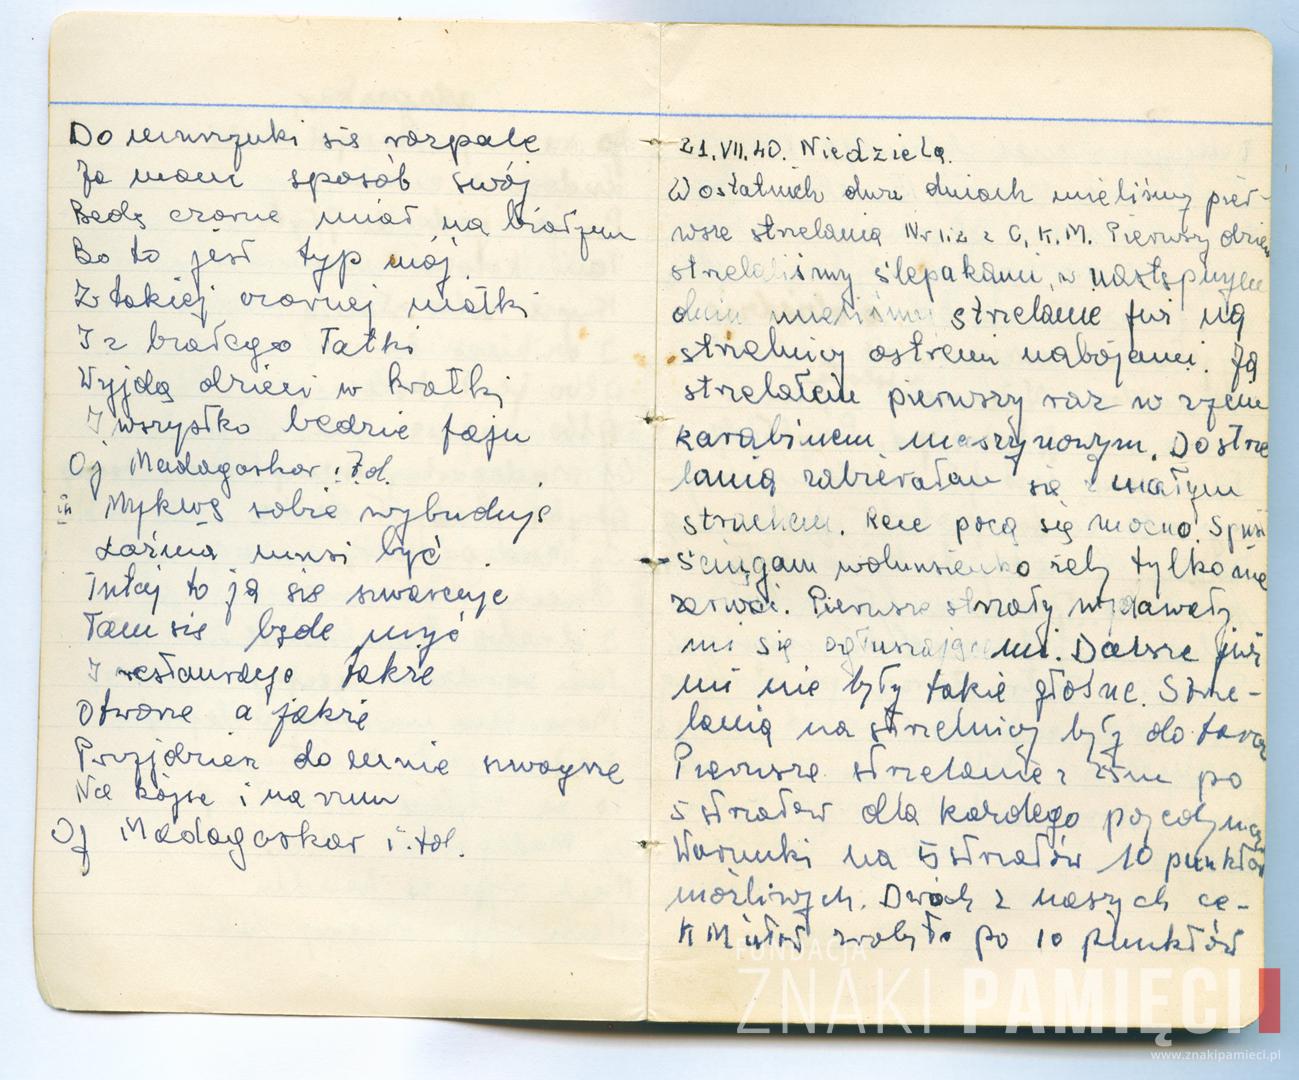 Do murzynki się rozpalę
Ja mam sposób swój
Będę czarne miał na białzem
Bo to jest typ mój.
Z takiej czarnej matki
I z białego Tatki
Wyjdą dzieci w kratki
I wszystko będzie fajn
Oj Madagaskar i.t.d.
Mykwę sobie wybuduję
Łaźnia musi być
Tutaj to ja się szwarcuję
Tam się będę myć
I restaurację także
Otworzę a jakże
Przyjdzież do mnie szwagrze
Na kojse i na rum
Oj Madagaskar i.td.
21.VII.40. Niedziela.
W ostatnich dwu dniach mieliśmy pier-
wsze strzelania Nr 1 i 2 z C.K.M. Pierwszy dzień
strzelaliśmy ślepakami, w następnym
dniu mieliśmy strzelanie już na
strzelnicy ostremi nabojami. Ja
strzelałem pierwszy raz w życiu
karabinem maszynowym. Do strze
lania zabierałam się z małym
strachem. Ręce pocą się mocno. Spust
ściągam woluusieńko żeby tylko nie
zerwać. Pierwsze strzały wydawały
mi się ogłuszającemi. Dalsze już
mi nie były takie głośne. Strze-
lania na strzelnicy były do tarcz
Pierwsze strzelanie z 25m po
5 strzałów dla każdego pojedyńcze
Warunki na 5 strzałów 10 punktów
możliwych. Dwóch z naszych ce-
KMistów zrobiło po 10 punktów
FUNDACJA
ZNAKI PAMIĘCI
www.znakipamieci.pl